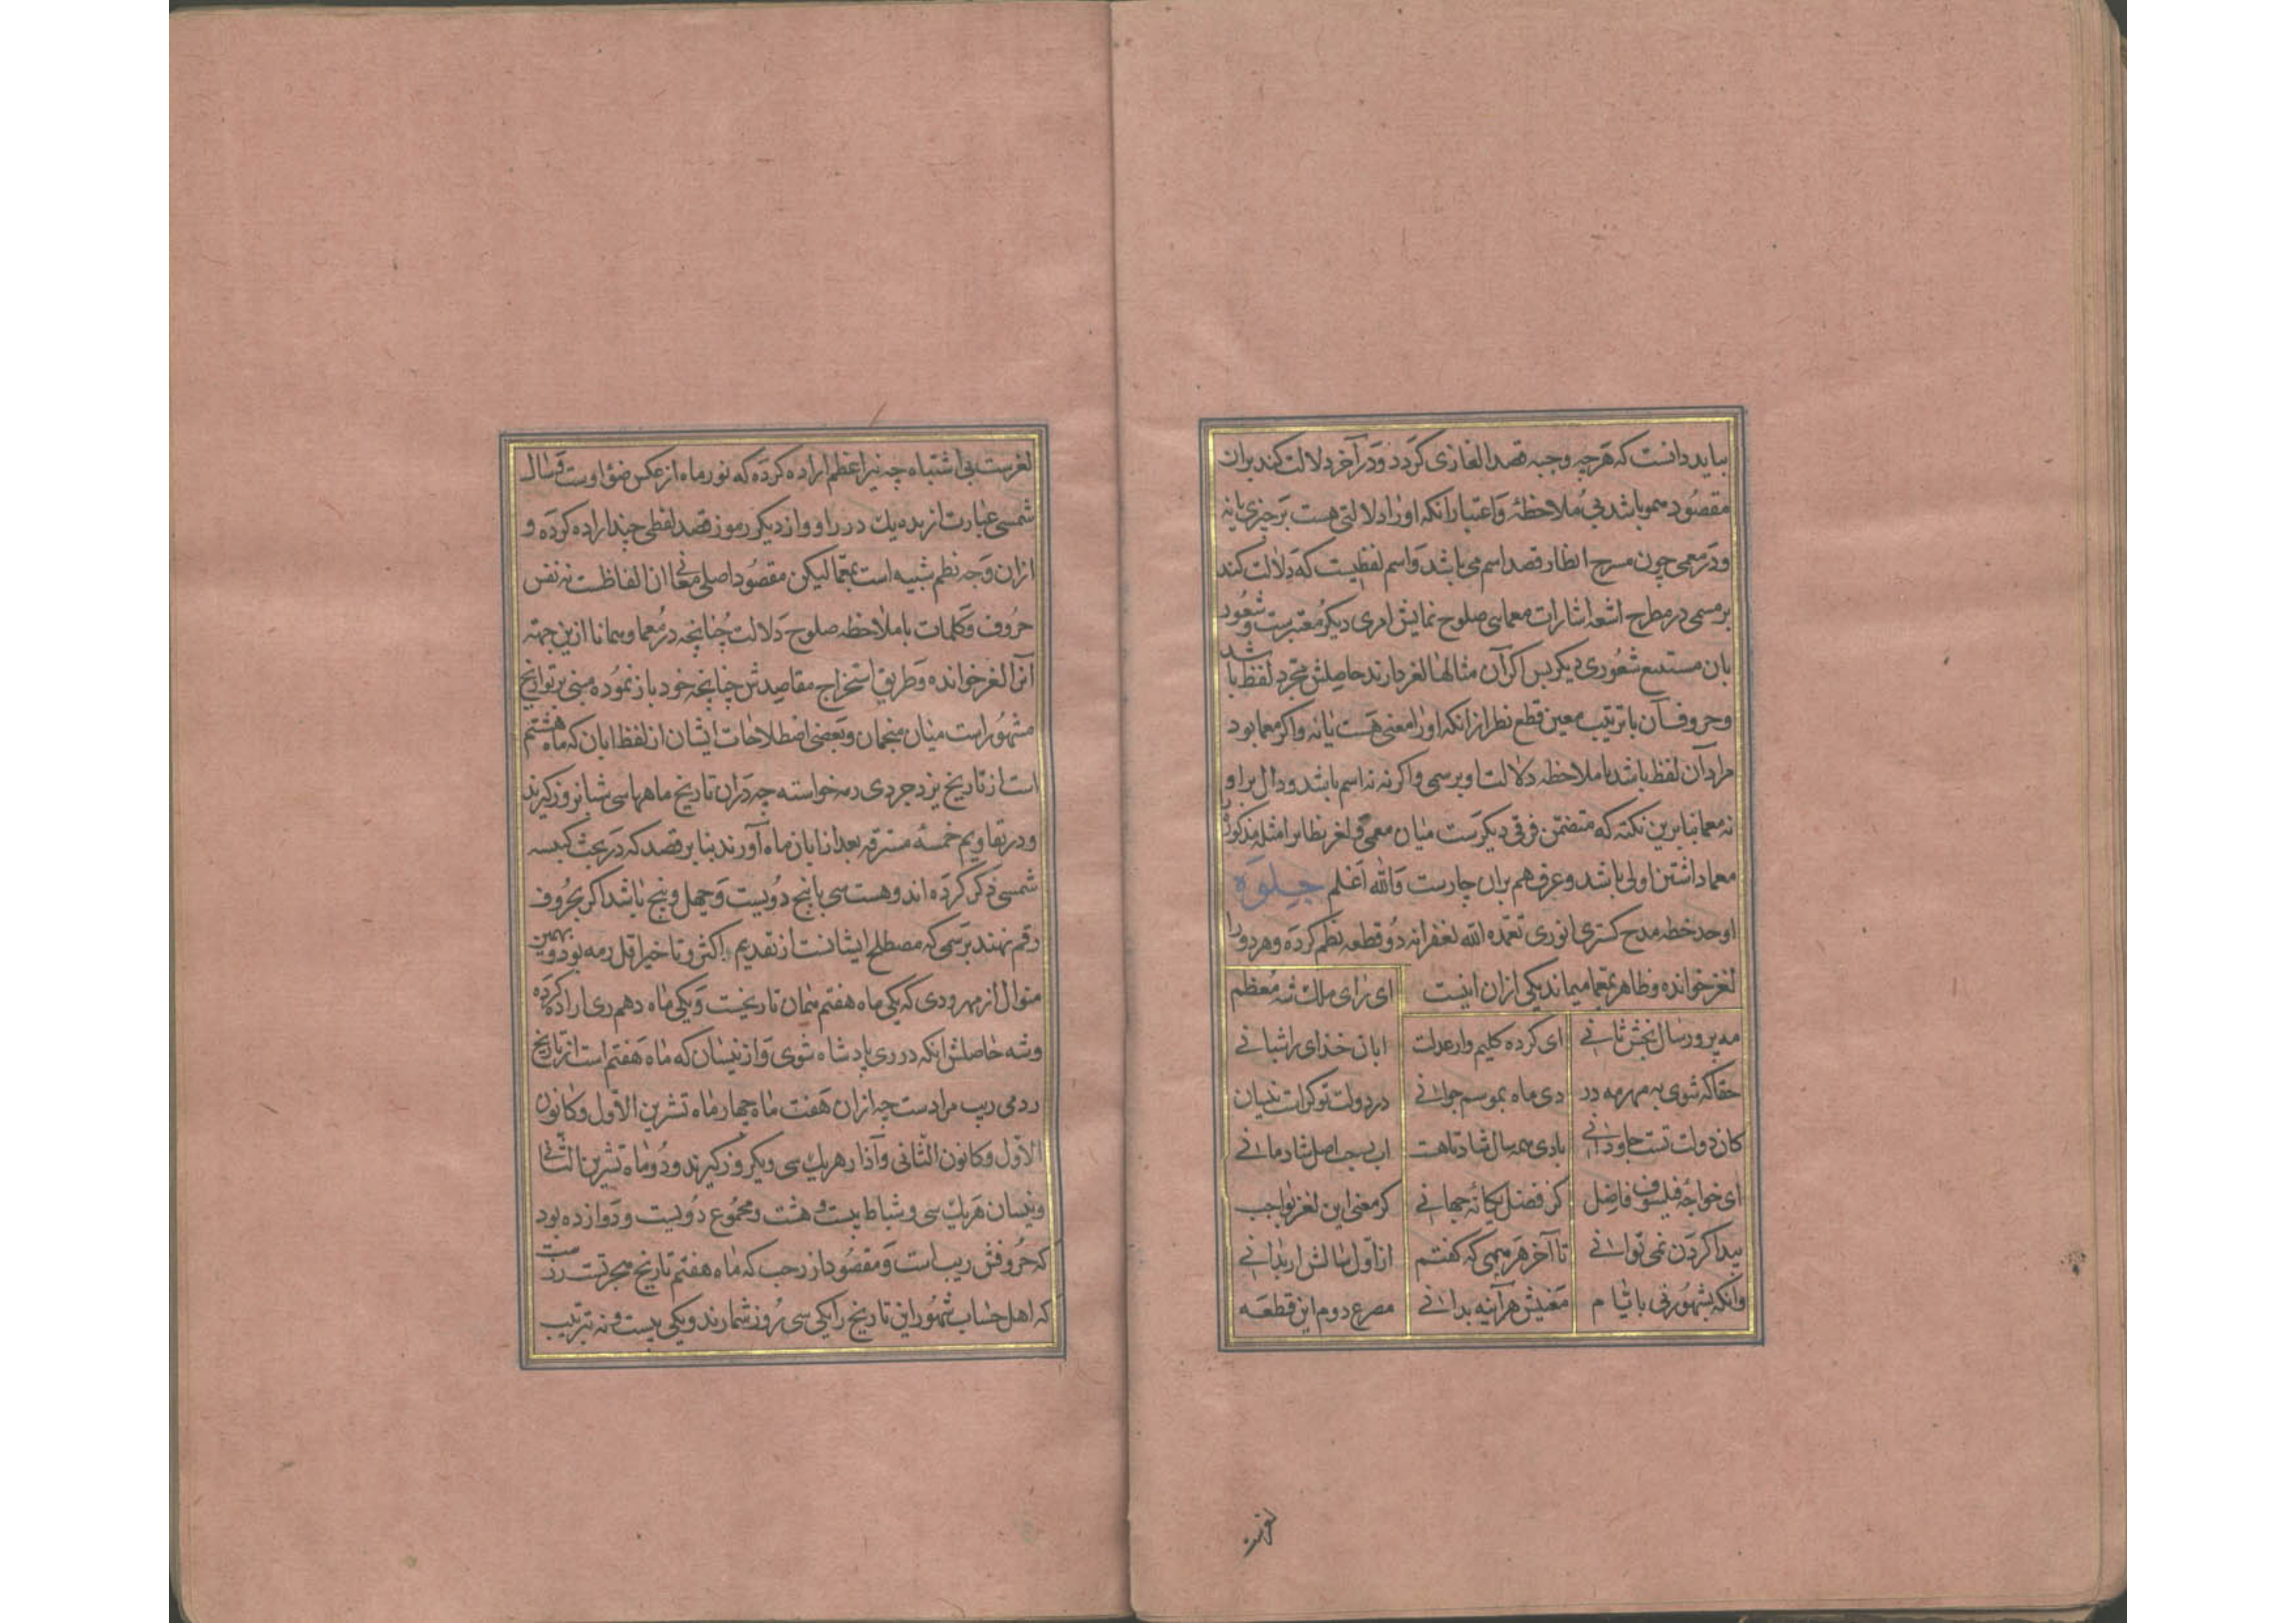 بباید دانست که هرچه وجبه قصد الغازی کردد ودر آخر دلالت کند بران
مقصود همو باشد بی ملاحظهٔ واعتبار انکه او را دلالتی هست بر چیزی یا نه
ودر معمی چون مسرح انظار قصد اسم می باشد واسم لفظیست که دلالت کند
بر مسمی در مطرح اشعه اشارات معمایی صلوح نمایش امری دیکر معتبرست وشعور
بان مستتبع شعوری دیکر پس اکر آن مثالها لغز دارند حاصلش مجرد لفظ باشد
وحروف آن با ترتیب معین قطع نظر از انکه او را معنی هست یا نه واکر معما بود
مراد آن لفظ باشد با ملاحظه دلالت او بر مسمی واکر نه نه اسم باشد ودال براو
نه معما بنابرین نکته که متضمن فرقی دیکرست میان معمی ولغز نظایر امثله مذکور
معما داشتن اولی باشد وعرف هم بران جارست والله اعلم جلوة
اوحد خطه مدح کستری انوری تغمده الله بغفرانه دو قطعه نظم کرده وهر دو را
لغز خوانده وظاهر بمعما میماند یکی از ان اینست
ای رای ملک شه معظم
مه پرور سال بخش ثانی ای کرده کلیم وار عدلت ابان خدای را شبانی
حقا که شوی به مهر مه در دی ماه بموسم جوانی در دولت تو کرات نیسان
کان دولت تست جاودانی بادی همه سال شاد تا هست اب رجب اصل شادمانی
ای خواجه فیلسوف فاضل کز فضل یکانه جهانی کر معنی این لغز بواجب
پیدا کردن نمی توانی تا آخر هر مهی که کفتم از اول سالش ار بدانی
وانکه بشهور نی بایام مغنیش هر آینه بدانی مصرع دوم این قطعه
لغزست
لغزست بی اشتباه چه نیر اعظم اراده کرده که نور ماه از عکس ضوء اوست وسال
شمسی عبارت از بده یک در راو واز دیکر رموز قصد لفظی چند اراده کرده و
ازان وجه نظم شبیه است بمعما لیکن مقصود اصلی معانی ان الفاظست نه نفس
حروف وکلمات با ملاحظه صلوح دلالت چنانچه در معما وهمانا ازین جهته
آنرا لغز خوانده وطریق استخراج مقاصدش چنانچه خود باز نموده مبنی بر تواریخ
مشهور است میان منجمان وبعضی اصطلاحات ایشان از لفظ ابان که ماه هشتم
است از تاریخ یزدجردی رمه خواسته چه دران تاریخ ماهها سی شبانروز کیرند
ودر تقاویم خمسه مسترقه بعد از ابان ماه آورند بنابر قصد که در بحث کبیسه
شمسی ذکر کرده اند وهست سی با پنج دویست وچهل وپنج باشد اکر بحروف
رقم نهند برسمی که مصطلح ایشانست از تقدیم اکثر وتاخیر اقل رمه بود وبرین
منوال از مهر ودی که یکی ماه هفتم همان تاریخست ویکی ماه دهم ری اراده کرده
وشه حاصلش انکه در ری پادشاه شوی واز نیسان که ماه هفتم است از تاریخ
رومی ریب مرادست چه ازان هفت ماه چهار ماه تشرین الاول وکانون
الاول وکانون الثانی وآذار هریک سی ویکروز کیرند ودو ماه تشرین الثانی
ونیسان هریک سی وشباط بیست وهشت ومجموع دویست ودوازده بود
که حروفش ریب است ومقصود از رجب که ماه هفتم تاریخ هجرتست
که اهل حساب شهور این تاریخ را یکی سی روز شمارند ویکی بیست ونه بترتیب